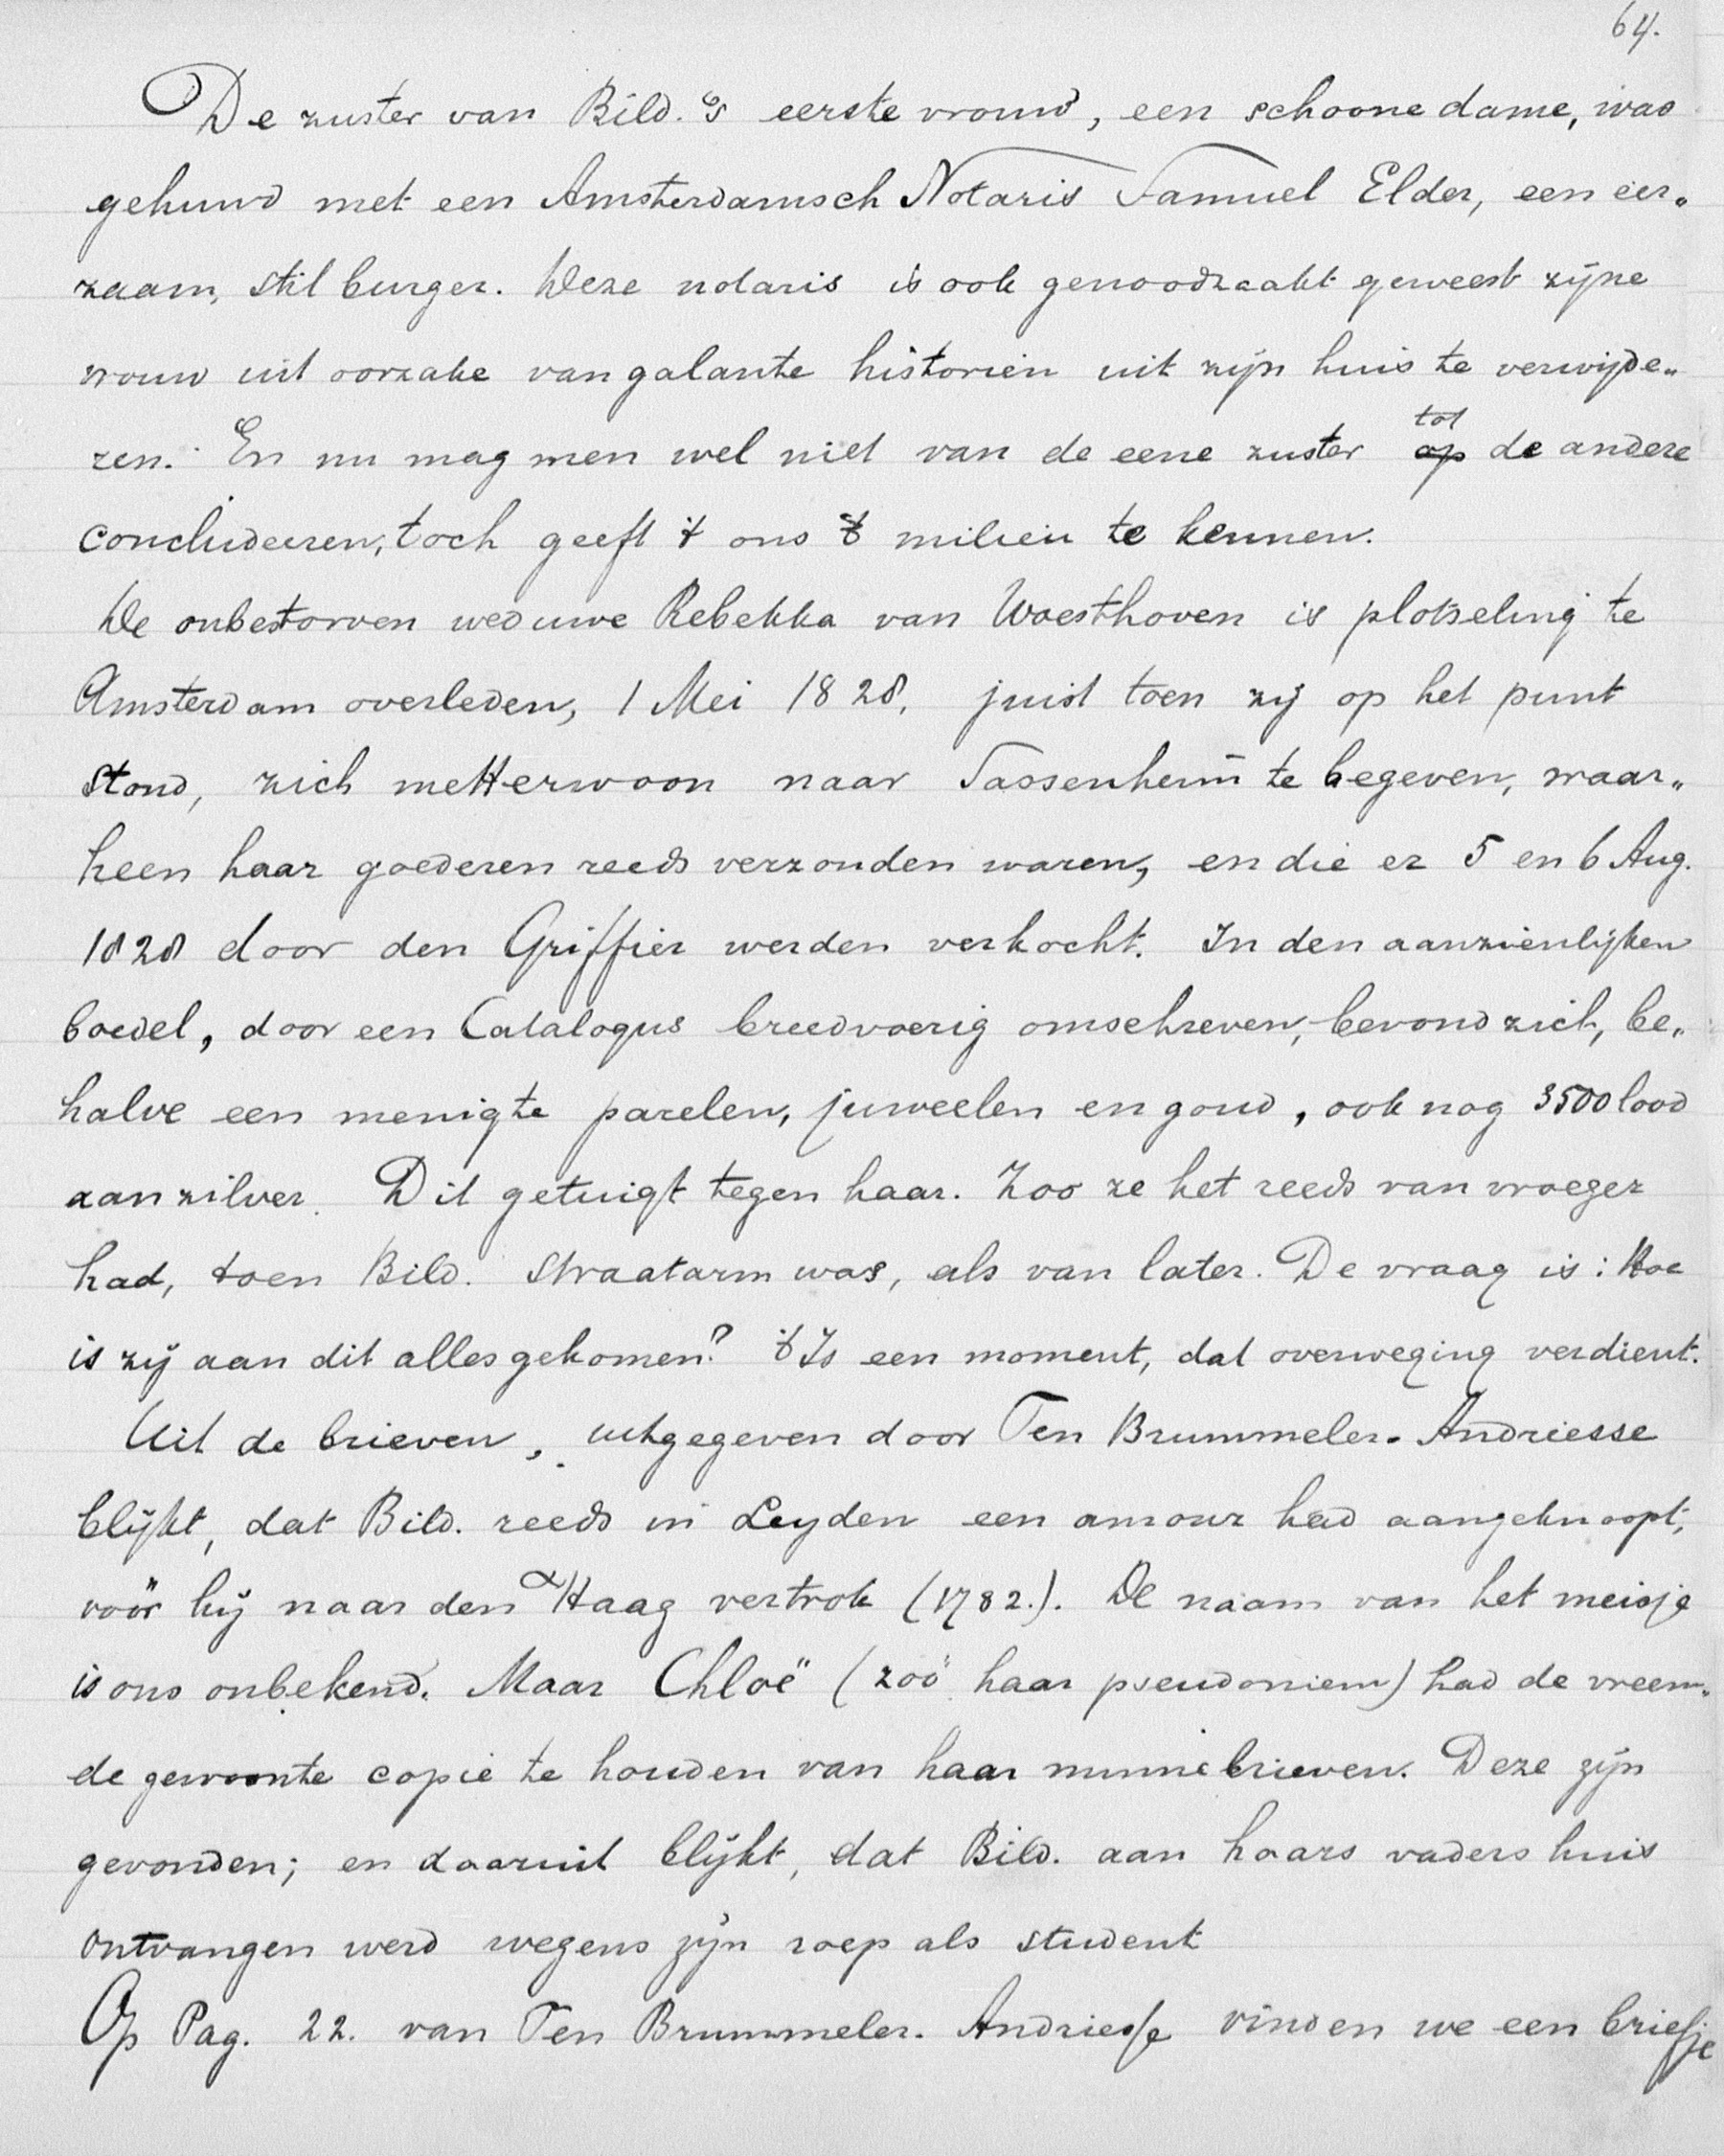 64.
De zuster van Bild.'s eerste vrouw, een schoone dame, was
gehuwd met een Amsterdamsch Notaris Samuel Elder, een eer„
zaam, stil burger. Deze notaris is ook genoodzaakt geweest zijne
vrouw uit oorzake van galante historiën uit zijn huis te verwijde„
ren. En nu mag men wel niet van de eene zuster ~~op~~ tot de andere
concludeeren, toch geeft 't ons 't milieu te kennen.
De onbestorven weduwe Rebekka van Woesthoven is plotseling te
Amsterdam overleden, 1 Mei 1828, juist toen zij op het punt
stond, zich metterwoon naar Sassenheim te begeven, waar„
heen haar goederen reeds verzonden waren, en die er 5 en 6 Aug.
1828 door den Griffier werden verkocht. In den aanzienlijken
boedel, door een Catalogus breedvoerig omschreven, bevond zich, be„
halve een menigte parelen, juweelen en goud, ook nog 3500 lood
aan zilver. Dit getuigt tegen haar. Zoo ze het reeds van vroeger
had, toen Bild. straatarm was, als van later. De vraag is: Hoe
is zij aan dit alles gekomen? 't Is een moment, dat overweging verdient.
Uit de brieven, uitgegeven door Ten Brummeler-Andriesse
blijkt, dat Bild. reeds in Leyden een amour had aangeknoopt,
vóór hij naar den Haag vertrok (1782.). De naam van het meisje
is ons onbekend. Maar Chloë (zóó haar pseudoniem) had de vreem„
de gewoonte copie te houden van haar minnebrieven. Deze zijn
gevonden; en daaruit blijkt, dat Bild. aan haars vaders huis
ontvangen werd wegens zijn roep als student
Op Pag. 22. van Ten Brummeler-Andriesse vinden we een briefje